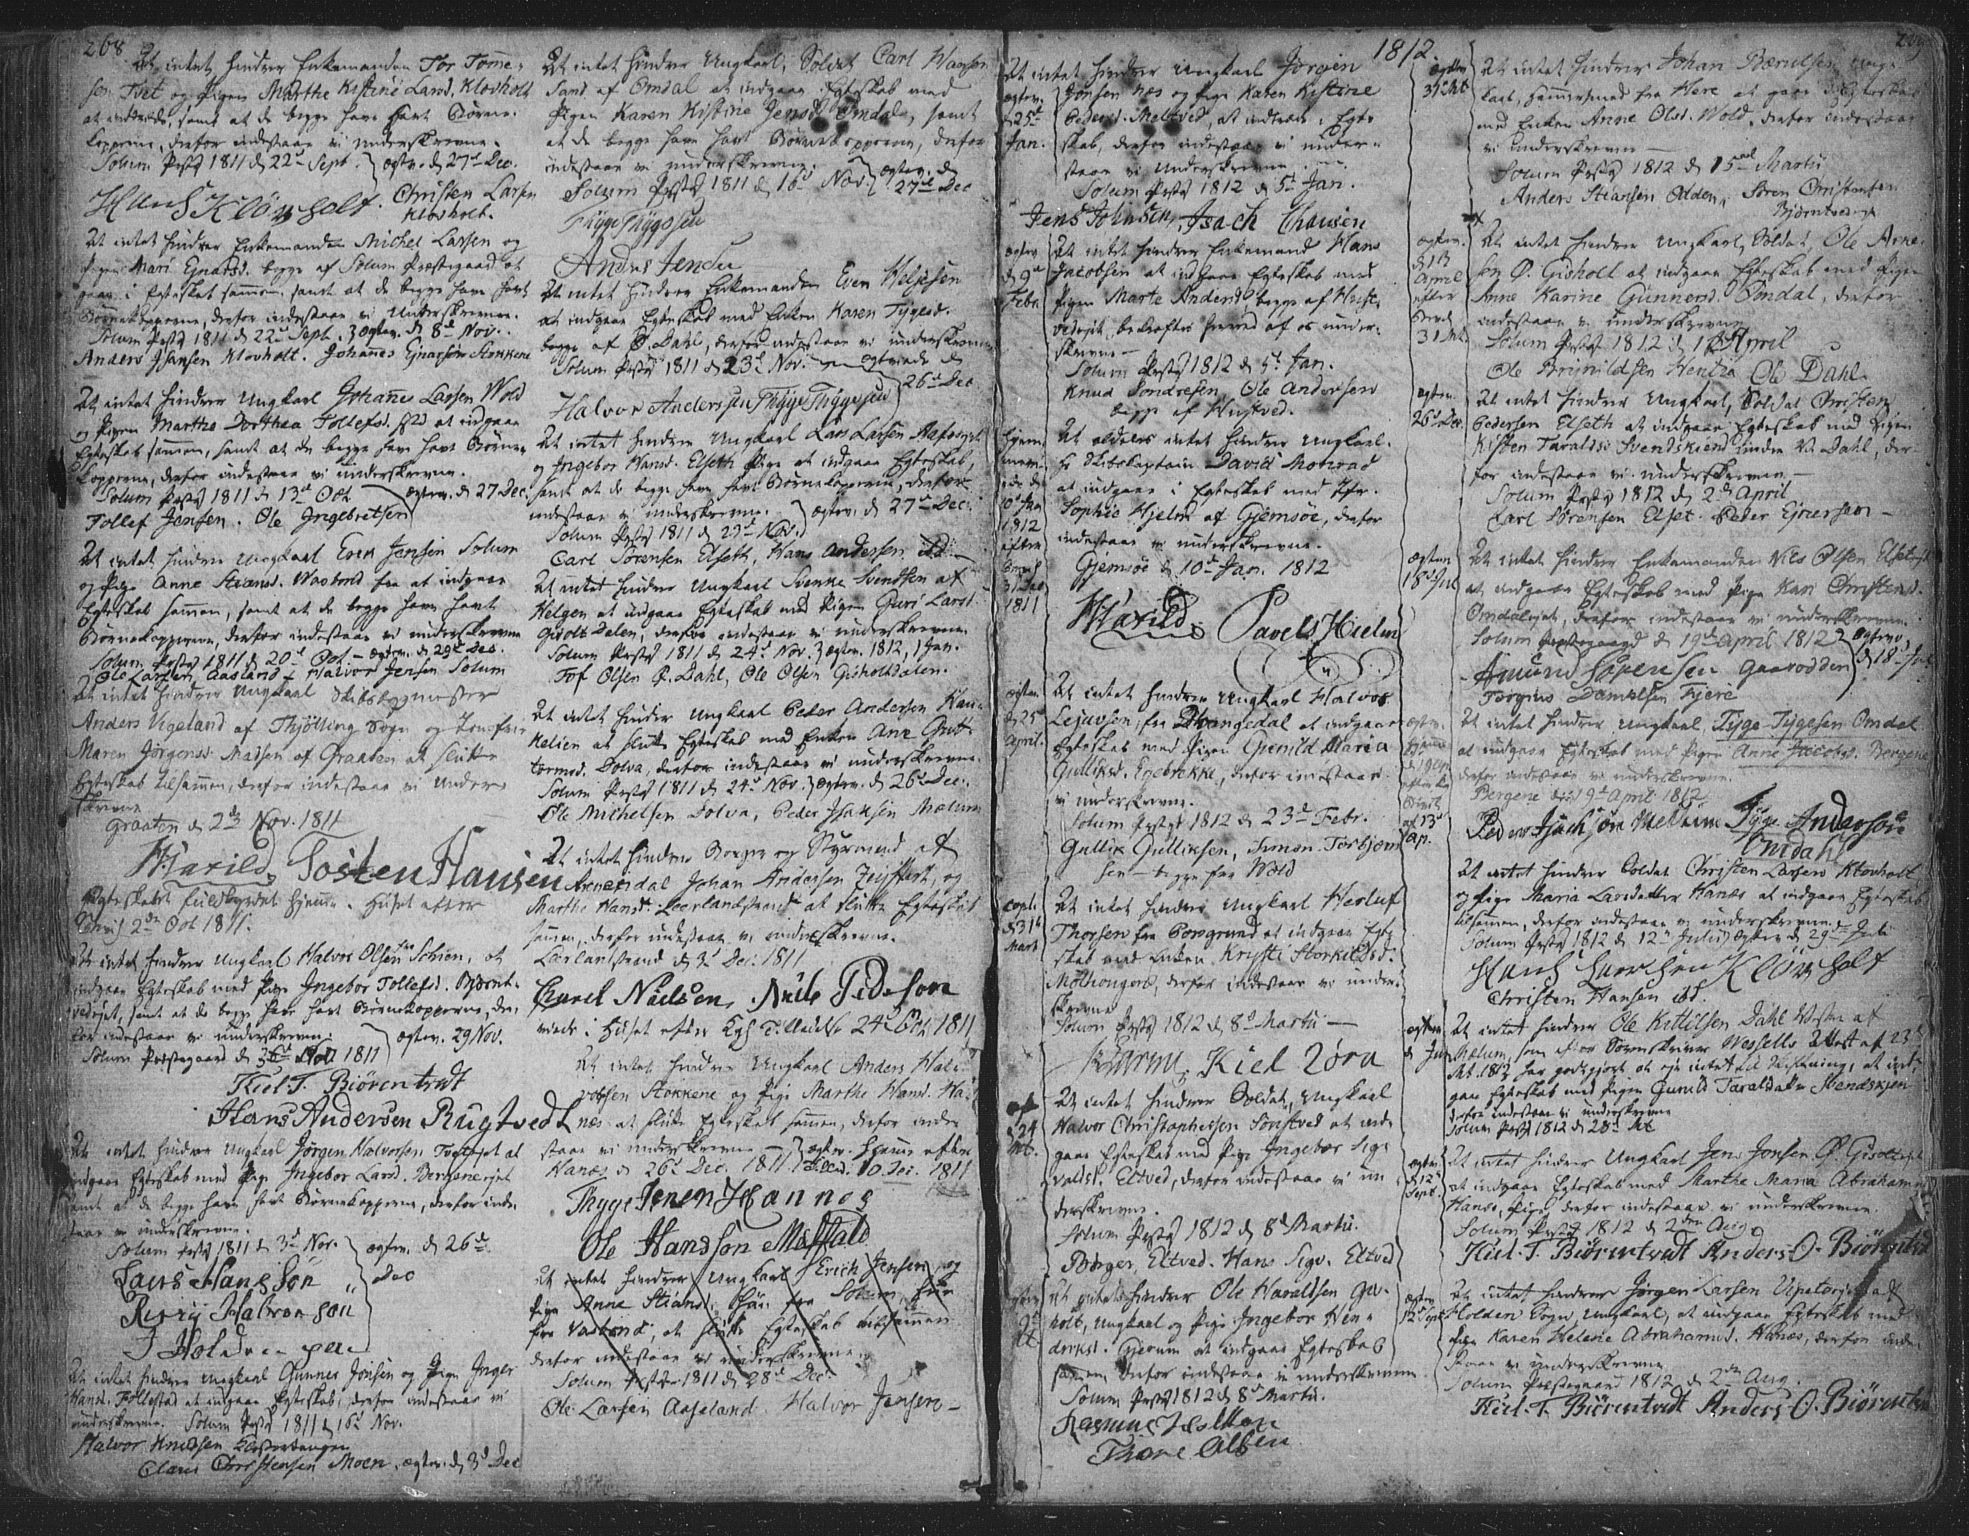 268
At intet hindrer Enkemanden Tor Tome-
sen Tvet og Pigen Marthe Kistine Lars d. Klovholt
at indtræde, samt at de begge have havt Børne-
kopperne, derfor indestaae vi underskrevne.
Solum Præstg 1811 d 22d Sept. ægtev. d. 27d Dec.
Hans Kløvholt. Christen Larsen
Klovholt.
At intet hindrer Enkemanden Michel Larsen og
Pigen Mari Gnarsd. begge af Solum Præstegaard at
gaae i Egteskab sammen, samt at de begge have havt
Børnekopperne, derfor indestaae vi Underskrevne.
Solum Præstg 1811 d 22d Sept. ægtev. d 8d Nov.
Anders Hansen Klovholt. Johannes Gnarsøn Støkkene
At intet hindrer Ungkarl Johannes Larsen Wold
og Pigen Marthe Dorthea Tollefsd. at indgaae
Egteskab sammen, samt at de begge have havt Børne-
kopperne, derfor indestaae vi underskrevne.
Solum Præstg 1811 d 13d Oct ægtev. d 27 Dec.
Tollef Jensen. Ole Ingebretsen
At intet hindrer Ungkarl Even Jensen Solum
og Pige Anne Stiansd. Wasbond fra at indgaae
Egteskab sammen, samt at de begge have havt
Børnekopperne, derfor indestaae vi underskrevne
Solum Præstg 1811 d 20d Oct - ægtev. d 29d Dec.
Ole Larsen Aasland Halvor Jensen Solum
At intet hindrer Ungkarl Skibsbygmester
Anders Vegeland af Thjølling Sogn og Jomfrue
Maren Jørgensd. Madsen af Graaten at slutte
Egteskab tilsammen, derfor indestaae vi Under-
skrevne
Graaten d 2d Nov. 1811
Waxild, Tosten Hansen
Egteskabet fuldbyrdet hjemme i Huset efter
Brev 2de Oct 1811.
At intet hindrer Ungkarl Halvor Olsen fra Schien, at
indgaae Egteskab med Pige Ingebor Tollefsd. Bjørnt-
vedejet, samt at de begge have havt Børnekopperne, der-
for indestaae vi underskrevne. ægtev. 29 Nov.
Solum Præstegaard d 3d Nov 1811
Kiel T. Biörentvdt
Hans Andersen Rugtvedt
At intet hindrer Ungkarl Jørgen Halvorsen Tvetejet at
indgaae Egteskab med Pige Ingebor Larsd. Bergenerejet
samt at de begge have havt Børnekopperne, derfor inde-
staae vi underskrevne.
Solum Præstg 1811 d 3d Nov. ægtev. d 26de
Dec
Lars Hansøn
Halvorsøn
At intet hindrer Ungkarl Gunner Jonsen og Pige Inger
Hansd. Tollestad at indgaae Egteskab, derfor indestaae vi
underskrevne. Solum Præstg 1811 d 16d Nov.
Halvor Knudsen Klosterkangen
Claus Christensen Moen. ægtev. d 3d Dec
At intet hindrer Ungkarl, Soldat Carl Hansen
Sand af Omdal at indgaae Egteskab med
Pigen Karen Kistine Jensd. Omdal, samt
at de begge have havt Børnekopperne, derfor
indestaae vi underskrevne. ægtev. d
27d Dec
Solum Præstg 1811 d 16d Nov.
Tygge Tyggesen
Andres Jensen
At intet hindrer Enkemanden Even Helgesen
at indgaae Egteskab med Enken Karen Tygesd.
begge af Ø. Dahl, derfor indestaae vi underskrevne
Solum Præstg 1811 d 23d Nov. - ægteviede d
26d Dec
Halvor Andersen Thygge Thyggesen
At intet hindrer Ungkarl Lars Larsen Aafos
og Ingebor Hansd. Elseth Pige at indgaae Egteskab,
samt at de begge have havt Børnekopperne, derfor
indestaae vi underskrevne. ægtev. d 27d Dec.
Solum Præstg 1811 d 23d Nov.
Carl Sørensen Elseth, Hans Andersen ibd.
At intet hindrer Ungkarl Svenke Svendsen af
Helgen at indgaae Egteskab med Pigen Guri Larsd.
Gisholt Dalen, derfor indestaae vi underskrevne.
Solum Præstg 1811 d 24d Nov. ægtev. 1812, 1 Jan.
Tof Olsen Ø. Dahl, Ole Olsen Gisholtdalen.
At intet hindrer Ungkarl Peder Andersen Hau-
kelien at slutte Egteskab med Enken Ane Gut-
tormsd. Dolva, derfor indestaae vi underskrevne.
Solum Præstg 1811 d 24d Nov. ægtev. d 26d Dec.
Ole Michelsen Dolva, Peder Isaksen Mælum
At intet hindrer Borger og Styrmand af
Arnendal Johan Andersen Zeiffert, og
Marthe Hansd. Leerlandstrand at slutte Egteskab
sammen, derfor indestaae vi underskrevne.
Lærlanstrand d 3d Dec. 1811
Carel Nielsen, Niels Pedersøn
viede i Huset efter Kgl Tilladelse 24d Oct. 1811
At intet hindrer Ungkarl Anders Hal-
vorsen Støkkene og Pige Marthe Hansd. Ha-
næs at slutte Egteskab sammen, derfor inde-
staae vi underskrevne - ægtev. hjemme efter
Hanæs d 26d Dec. 1811 10 Dec. 1811
Thygge Jensen Hannes
Ole Hansson Melstad
At intet hindrer Ungkarl Erich Jensen og
Pige Anne Stiansd. han fra Solum, hun
fra Vasbond, at slutte Egteskab tilsammen
derfor indestaae vi underskrevne.
Solum Præstg 1811 d 28d Dec.
Ole Larsen Aaseland. Halvor Jensen -
1812.
ægtev.
d 25d
Jan.
At intet hindrer Ungkarl Jørgen
Jonsen Nes og Pige Karen Kistine
Pedersd. Meltved, at indtræde i Egte-
skab, derfor indestaae vi under-
skrevne.
Solum Præstg 1812 d 5d Jan.
Jens Johnsen, Isach Clausen
ægtev
d 9d
Febr.
At intet hindrer Enkemand Hans
Jacobsen at indgaae Egteskab med
Pigen Marte Andersd. begge af Huse-
vedejet, bekræftes herved af os under-
skrevne -
Solum Præstg 1812 d 5d Jan.
Knud Sondresen, Ole Andersen
begge af Hustved.
hjem-
me
viede
10d Jan
1812
efter
Brev
31 Dec
1811
At aldeles intet hindrer Ungkarl.
Hr Skibskaptain David Monrad
at indgaae i Egteskab med Jfr.
Sophie Hjelm af Gjemsøe, derfor
indestaae vi underskrevne.
Gjemsøe d 10d Jan. 1812
Waxild Pavels Hielm
ægtev.
d 25d
April.
At intet hindrer Ungkarl Halvor
Lejuvsen, fra Drangedal at indgaae
Egteskab med Pigen Gunild Maria
Gulliksd. Egebrække, derfor indestaae
vi underskrevne.
Solum Præstg 1812 d 23d Febr.
Gullik Gulliksen, Simon Torbjørn-
sen - begge fra Wold
copl.
d 31d
Mart
At intet hindrer Ungkarl Herluf
Thorsen fra Porsgrund at indgaae Egte-
skab med Enken Kristi Storkildsd.
Mølhougen, derfor indestaae vi under-
skrevne
Solum Præstg 1812 d 8d Martii -
Kiel Zöra
d 24
Oct.
At intet hindrer Soldat, Ungkarl
Halvor Christophersen Sønstved at ind-
gaae Egteskab med Pige Ingebor Sig-
valdsd. Eltved, derfor indestaae vi un-
derskrevne.
Solum Præstg 1812 d 8d Martii.
Børger Eltved. Hans Sigv. Eltved
At intet hindrer Ole Haraldsen Gis-
holt, Ungkarl og Pige Ingebor Hen-
driksd. Gjerum at indgaae Egteskab
sammen, derfor indestaae vi underskrevne
Solum Præstg 1812 d 8d Martii.
Rasmus Holtan
Thore Olsen
ægtev
31 Oct
At intet hindrer Johan Berntsen Ung-
karl, Hammersmed fra Here at gaae i Egteskab
med Enken Anne Olsd. Wold, derfor indestaae
vi underskrevne -
Solum Præstg 1812 d 15d Martii
Anders Stiansen Odden, Søren Christensen
Bjørntvedejet
ægtev.
d 13
April
efter
Brev
31 Oct
At intet hindrer Ungkarl, Soldat, Ole Arne-
sen Ø. Gisholt at indgaae Egteskab med Pigen
Anne Karine Gunnersd. Omdal, derfor
indestaae vi underskrevne
Solum Præstg 1812 d 12 April
Ole Brynildsen Henria Ole Dahl.
ægtev.
26d Dec.
At intet hindrer Ungkarl, Soldat Christen
Pedersen Elseth at indgaae Egteskab med Pigen
Kisten Taraldsd. Svendskiend under V. Dahl, der-
for indestaae vi underskrevne -
Solum Præstg 1812 d 2d April
Carl Sørensen Elset. Peder Ejnersen -
ægtev
18d Jul
At intet hindrer Enkemanden Nils Olsen Elsetejet
at indgaae Egteskab med Pige Kari Christensd.
Omdalejet, derfor indestaae vi underskrevne.
Solum Præstegaard d 19d April 1812 ægtev.
d 18d Jul
Amund Sörensen Gaarodden
Torgius Danielsen Fjære
At intet hindrer Ungkarl, Tyge Tygesen Omdal
at indgaae Egteskab med Pigen Anne Jacobsd. Bergene
derfor indestaae vi underskrevne.
Bergene d 19d April 1812
Peder Isachsön Melum Tyge Anderson
Omdahl
At intet hindrer Soldat Christen Larsen Klovholt
og Pige Maria Larsdatter Hanæs at indgaae Egteskab
tilsammen, derfor indestaae vi underskrevne.
Solum Præstg 1812 d 12d Julii ægtev d 29de Juli
Hans Larsen Klövholt
Christen Hansen ibd.
ægtev
d Jun
At intet hindrer Ole Kittilsen Dahl Vestre af
Mælum, som af os Sorenskriver Wessells Attest af 23d
Oct. 1812 har godtgjort at eje intet til Skiftning, at ind-
gaae Egteskab med Pigen Gunild Taraldsdtr Svendskjen
derfor indestaae vi underskrevne
Solum Præstg 1812 d 28d Oct
ægtev.
d 12d
Sept.
At intet hindrer Ungkarl Jens Jonsen Ø. Gisoltejet
at indgaae Egteskab med Marthe Maria Abrahamsd
Hanæs, Pige, derfor indestaae vi underskrevne.
Solum Præstg 1812 d 2den Aug
Kiel. T. Biörentvedt Anders. O. Biörentvdt
ægtev
12d Sept
At intet hindrer Jørgen Larsen Vipetorejet af
Holden Sogn, Ungkarl, at indgaae Egteskab med
Pige Karen Helene Abrahamsd. Hanæs, derfor inde-
staae vi underskrevne
Solum Præstegaard 1812, d 2den Aug.
Kiel. T. Biörentvedt Anders. O. Biörentvdt